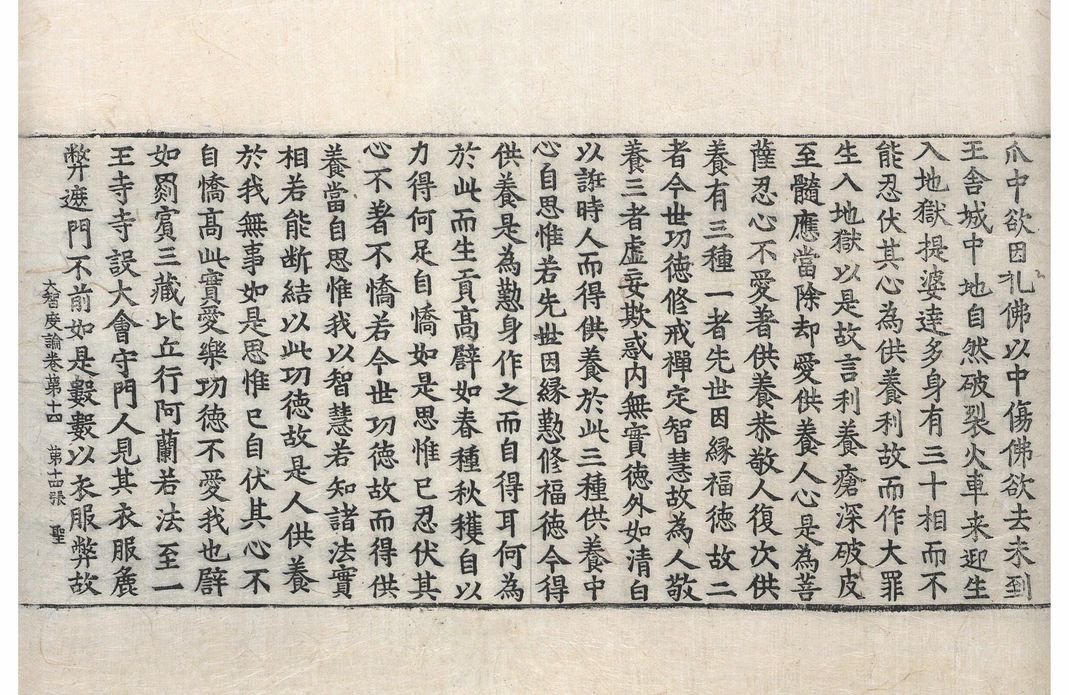 爪中欲因礼佛以中傷佛欲去未到
王舍城中地自然破裂火車来迎生
入地獄提婆逹多身有三十相而不
能忍伏其心為供養利故而作大罪
生入地獄以是故言利養瘡深破皮
至髓應當除却愛供養人心是為菩
薩忍心不愛著供養恭敬人復次供
養有三種一者先世因縁福徳故二
者今世功徳修戒禪定智慧故為人敬
養三者虚妄欺惑内無實徳外如清白
以誑時人而得供養於此三種供養中
心自思惟若先世因縁懃修福徳今得
供養是為懃身作之而自得耳何為
於此而生貢高譬如春種秋穫自以
力得何足自憍如是思惟已忍伏其
心不著不憍若今世功徳故而得供
養當自思惟我以智慧若知諸法實
相若能断結以此功徳故是人供養
於我無事如是思惟已自伏其心不
自憍高此實愛樂功徳不愛我也譬
如罽賓三藏比丘行阿蘭若法至一
王寺寺設大會守門人見其衣服麁
弊遮門不前如是數數以衣服弊故
大智度論巻第十四 第十張 聖